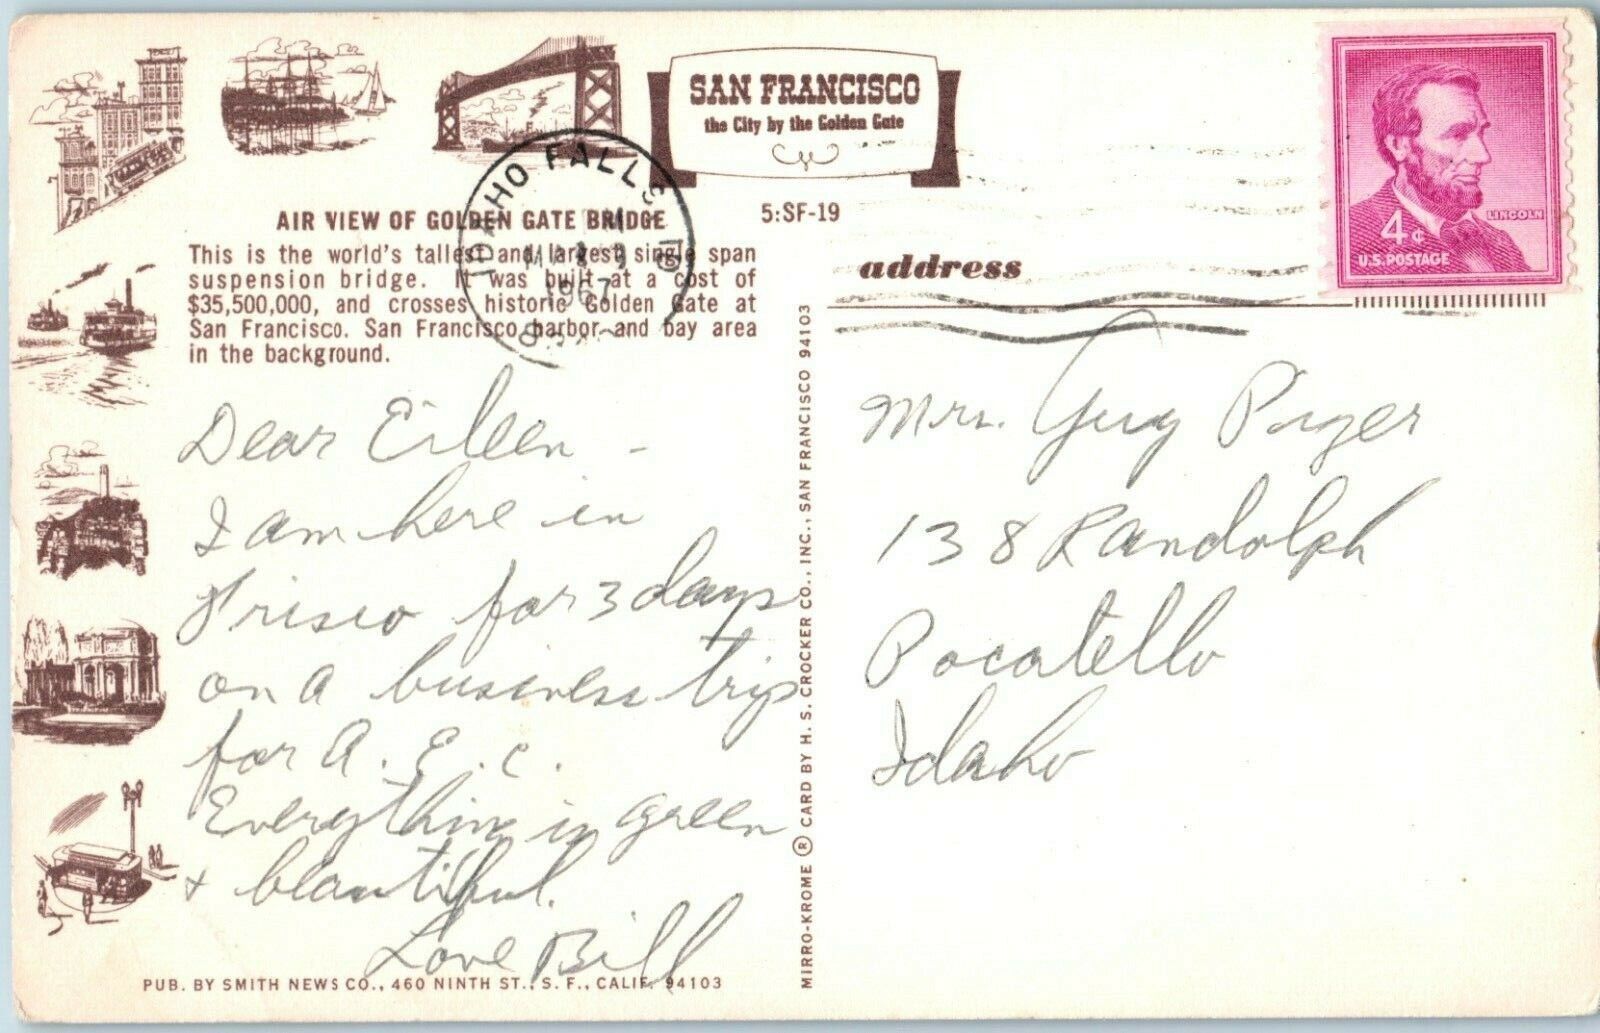 SAN FRANCISCO
the City by the Golden Gate
LINCOLN
4¢
U.S. POSTAGE
IDAHO FALLS ID
1967
AIR VIEW OF GOLDEN GATE BRIDGE
5:SF-19
This is the world's tallest and largest single span
suspension bridge. It was built at a cost of
$35,500,000, and crosses historic Golden Gate at
San Francisco. San Francisco harbor and bay area
in the background.
address
Dear Eileen -
I am here in
Frisco for 3 days
on a business trip
for A.E.C.
Everything is green
& beautiful.
Love Bill
Mrs. Guy
138 Randolph
Pocatello
Idaho
MIRRO-KROME ® CARD BY H. S. CROCKER CO., INC., SAN FRANCISCO 94103
PUB. BY SMITH NEWS CO., 460 NINTH ST., S. F., CALIF. 94103